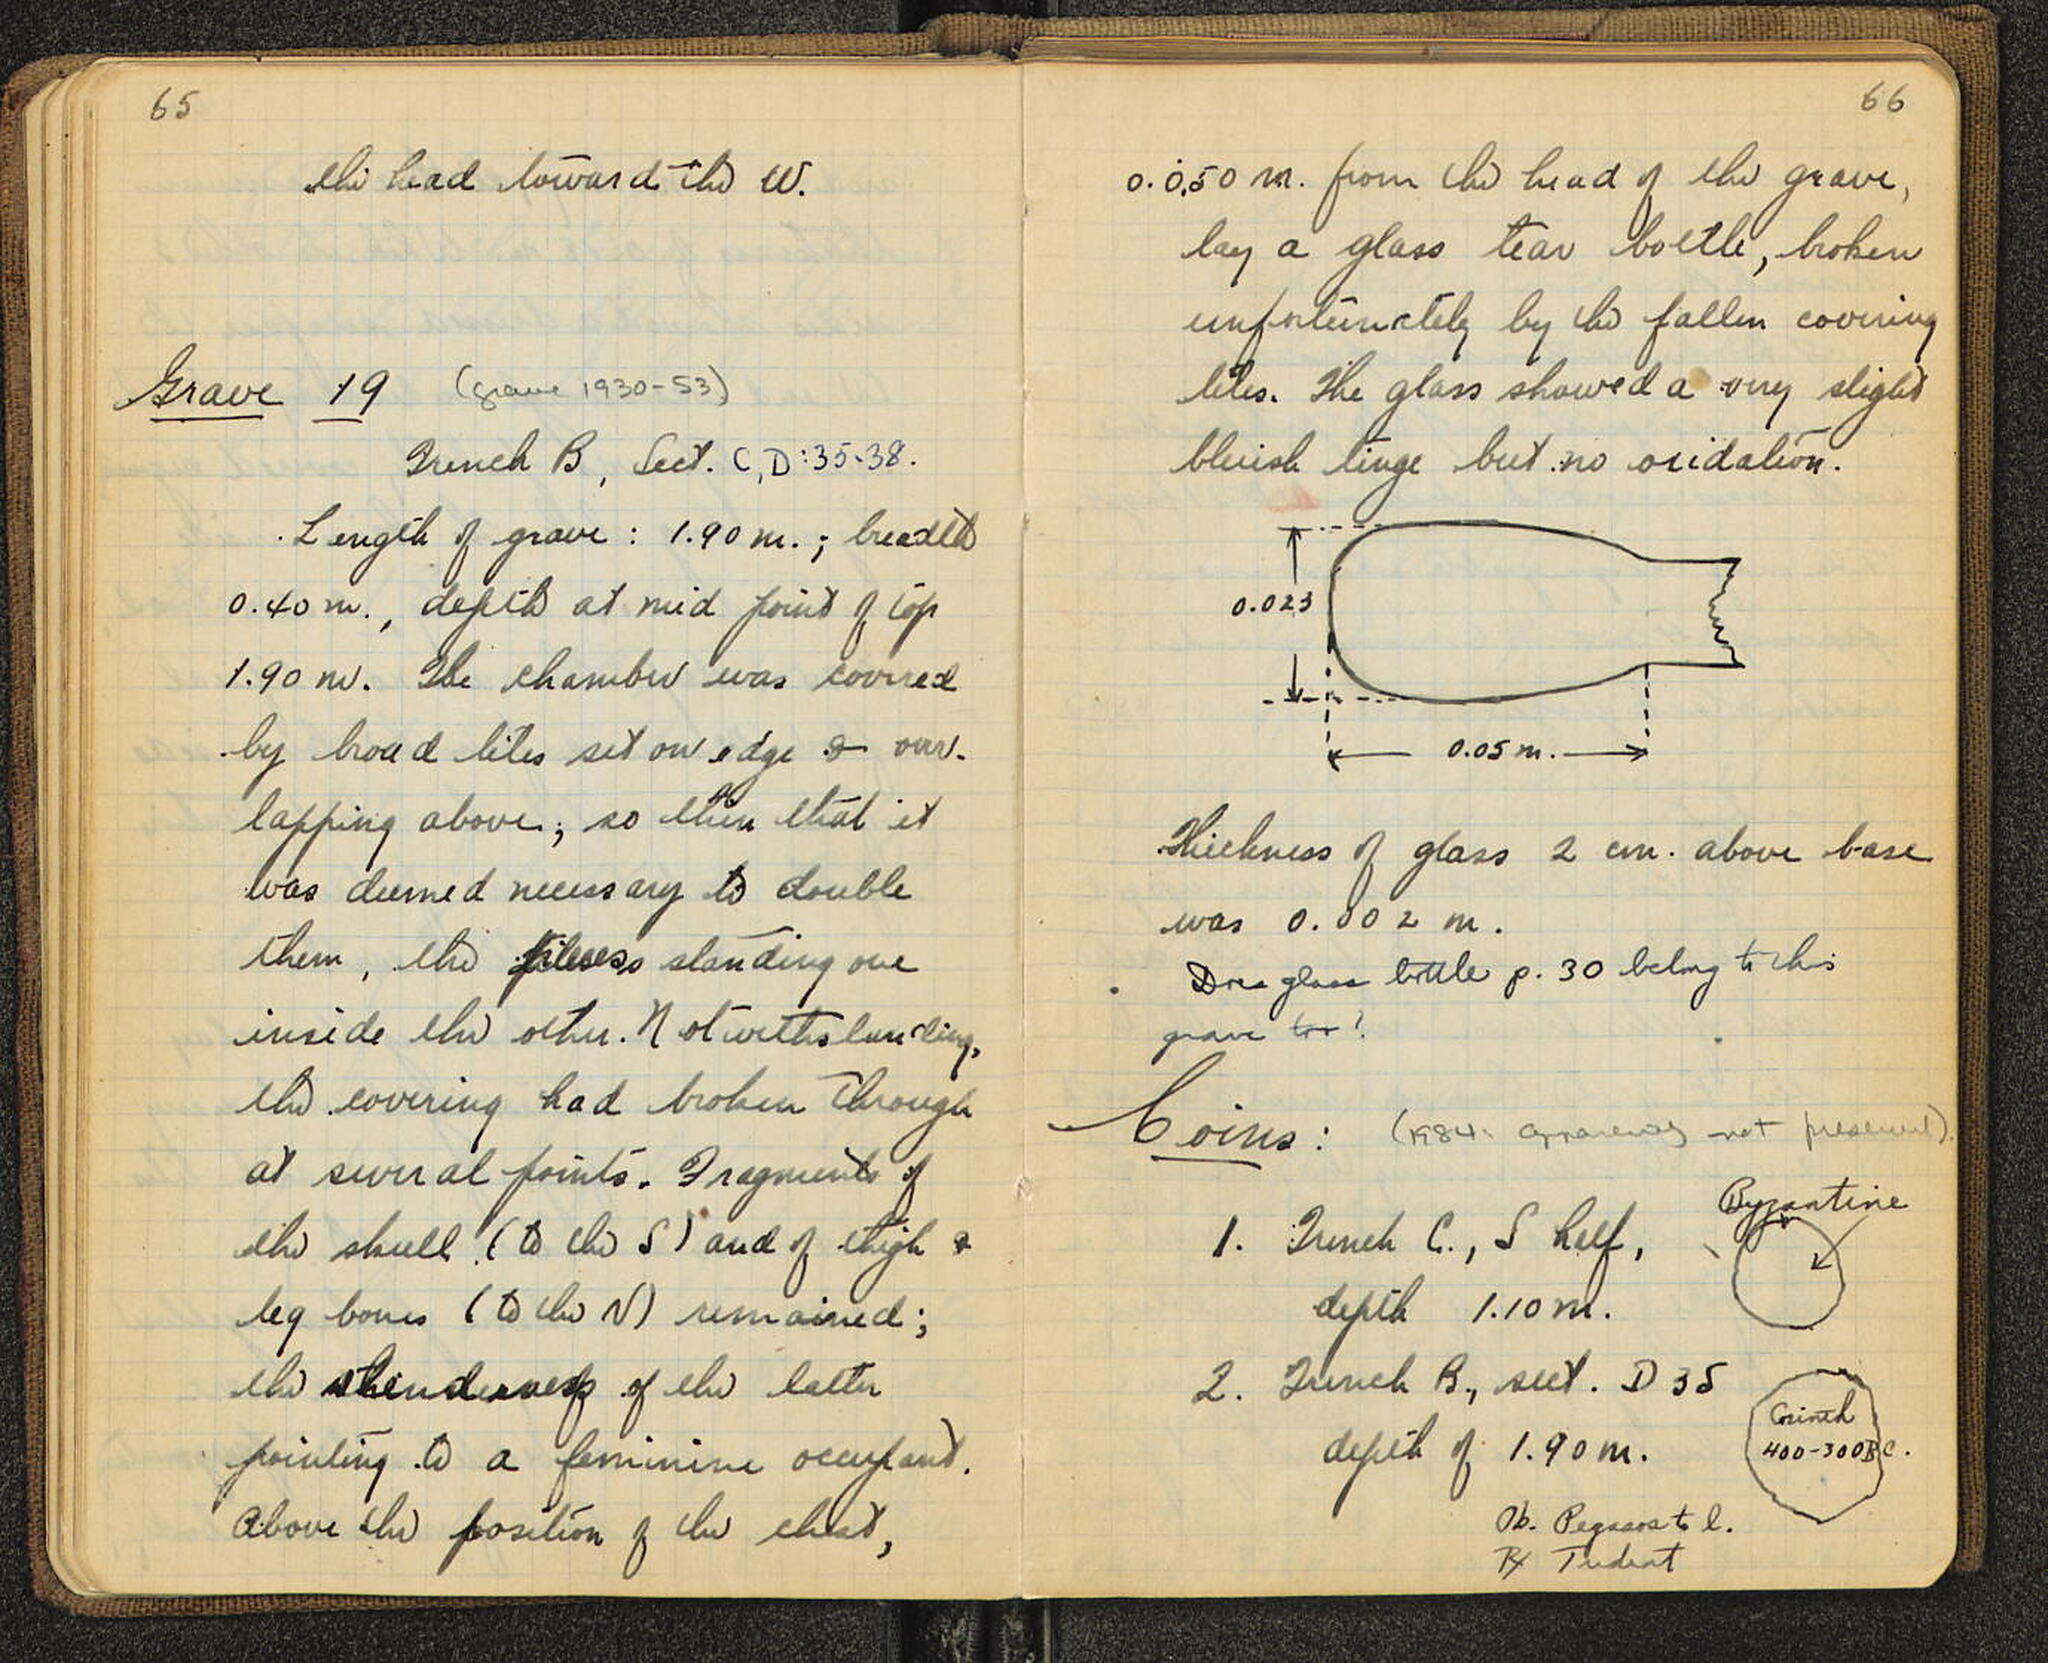 65
the head toward the W.
Grave 19 (grave 1930-53)
Trench B, Sect. C, D:35-38.
Length of grave: 1.90 m.; breadth
0.40 m., depth at mid point of top
1.90 m. The chamber was covered
by broad tiles set on edge & over-
lapping above; so thin that it
was deemed necessary to double
them, the pieces standing one
inside the other. Notwithstanding,
the covering had broken through
at several points. Fragments of
the skull (to the S) and of thigh &
leg bones (to the N) remained;
the slenderness of the latter
pointing to a feminine occupant.
Above the position of the chest,
66
0.050 m. from the head of the grave,
lay a glass tear bottle, broken
unfortunately by the fallen covering
tiles. The glass showed a very slight
bluish tinge but no oxidation.
0.023
0.05 m.
Thickness of glass 2 cm. above base
was 0.002 m.
Does glass bottle p. 30 belong to this
grave too?
Coins: (1984: apparently not present)
Byzantine
1. Trench C., S half,
depth 1.10 m.
2. Trench B., sect. D 35
depth of 1.90 m.
Corinth
400-300 BC.
Ob. Pegasos to l.
Rx Trident